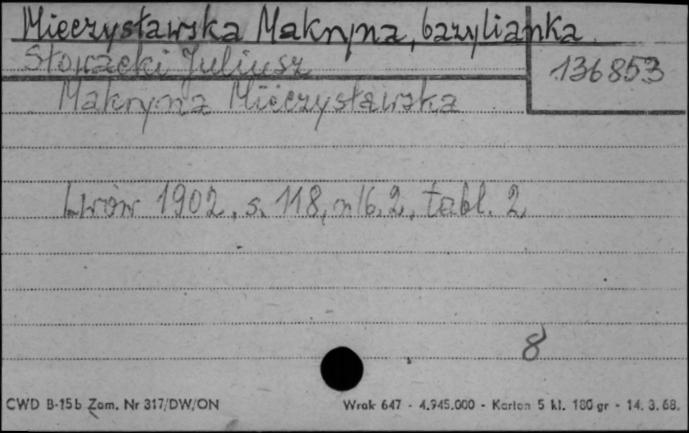 Mieczysławska Makryna, bazylianka
Słowacki Juliusz
136853
Makryna Mieczysławska
Lwów 1902, s. 118, nlb. 2, tabl. 2
8
CWD B-15b Zam. Nr 317/DW/ON
Wrak 647 - 4.945.000 - Karton 5 kl. 180 gr - 14. 3. 68.